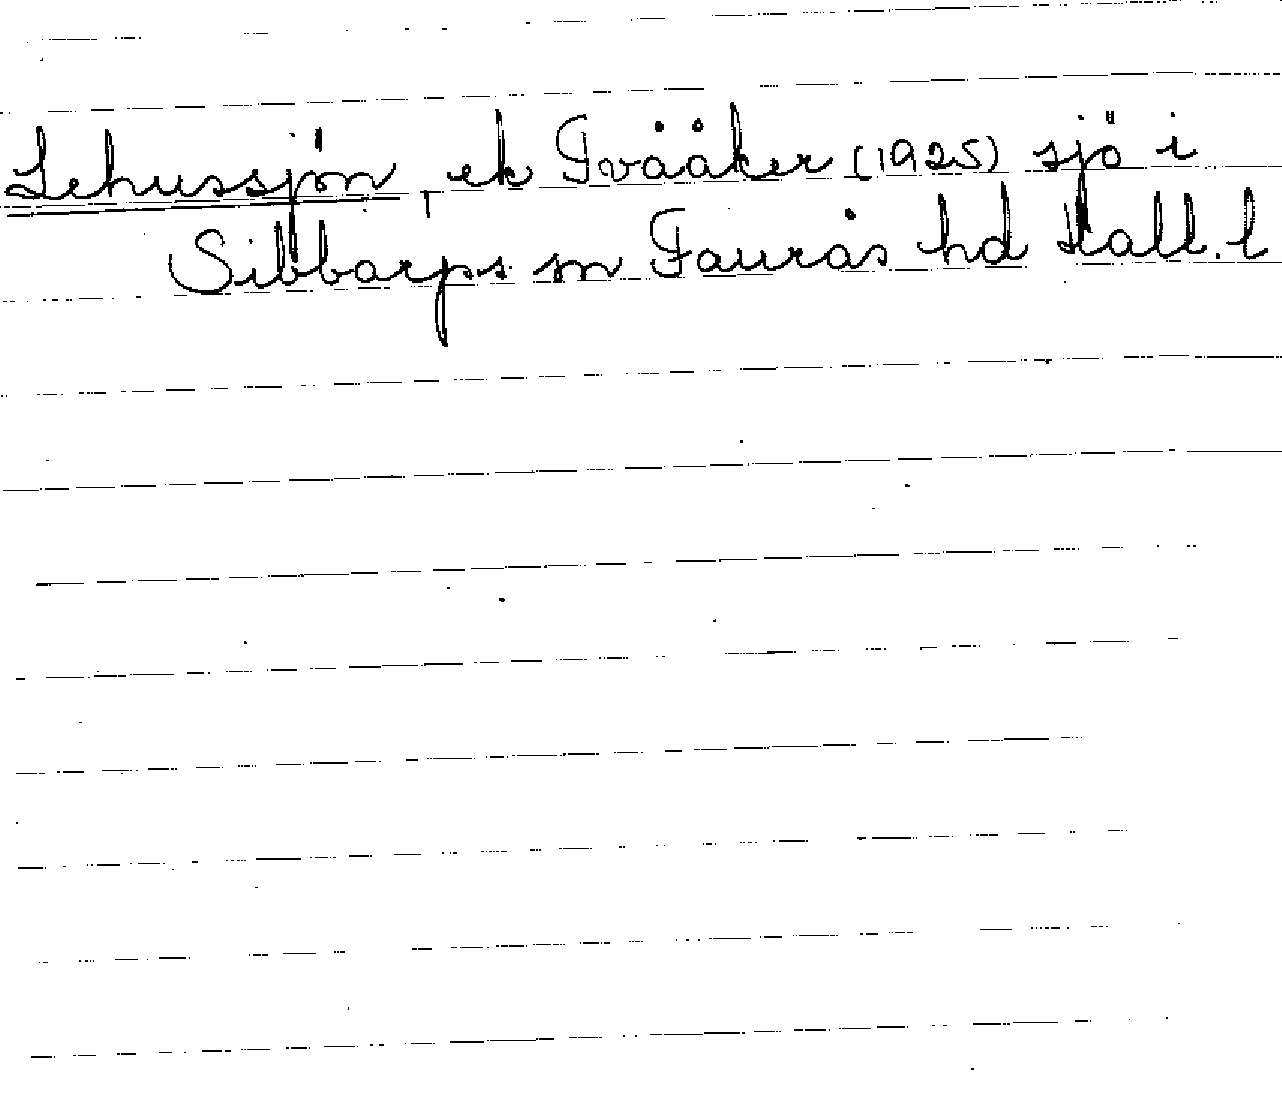 Lehussjön, ek Tvååker (1925) sjö i
Sibbarps sn Faurås hd Hall. l